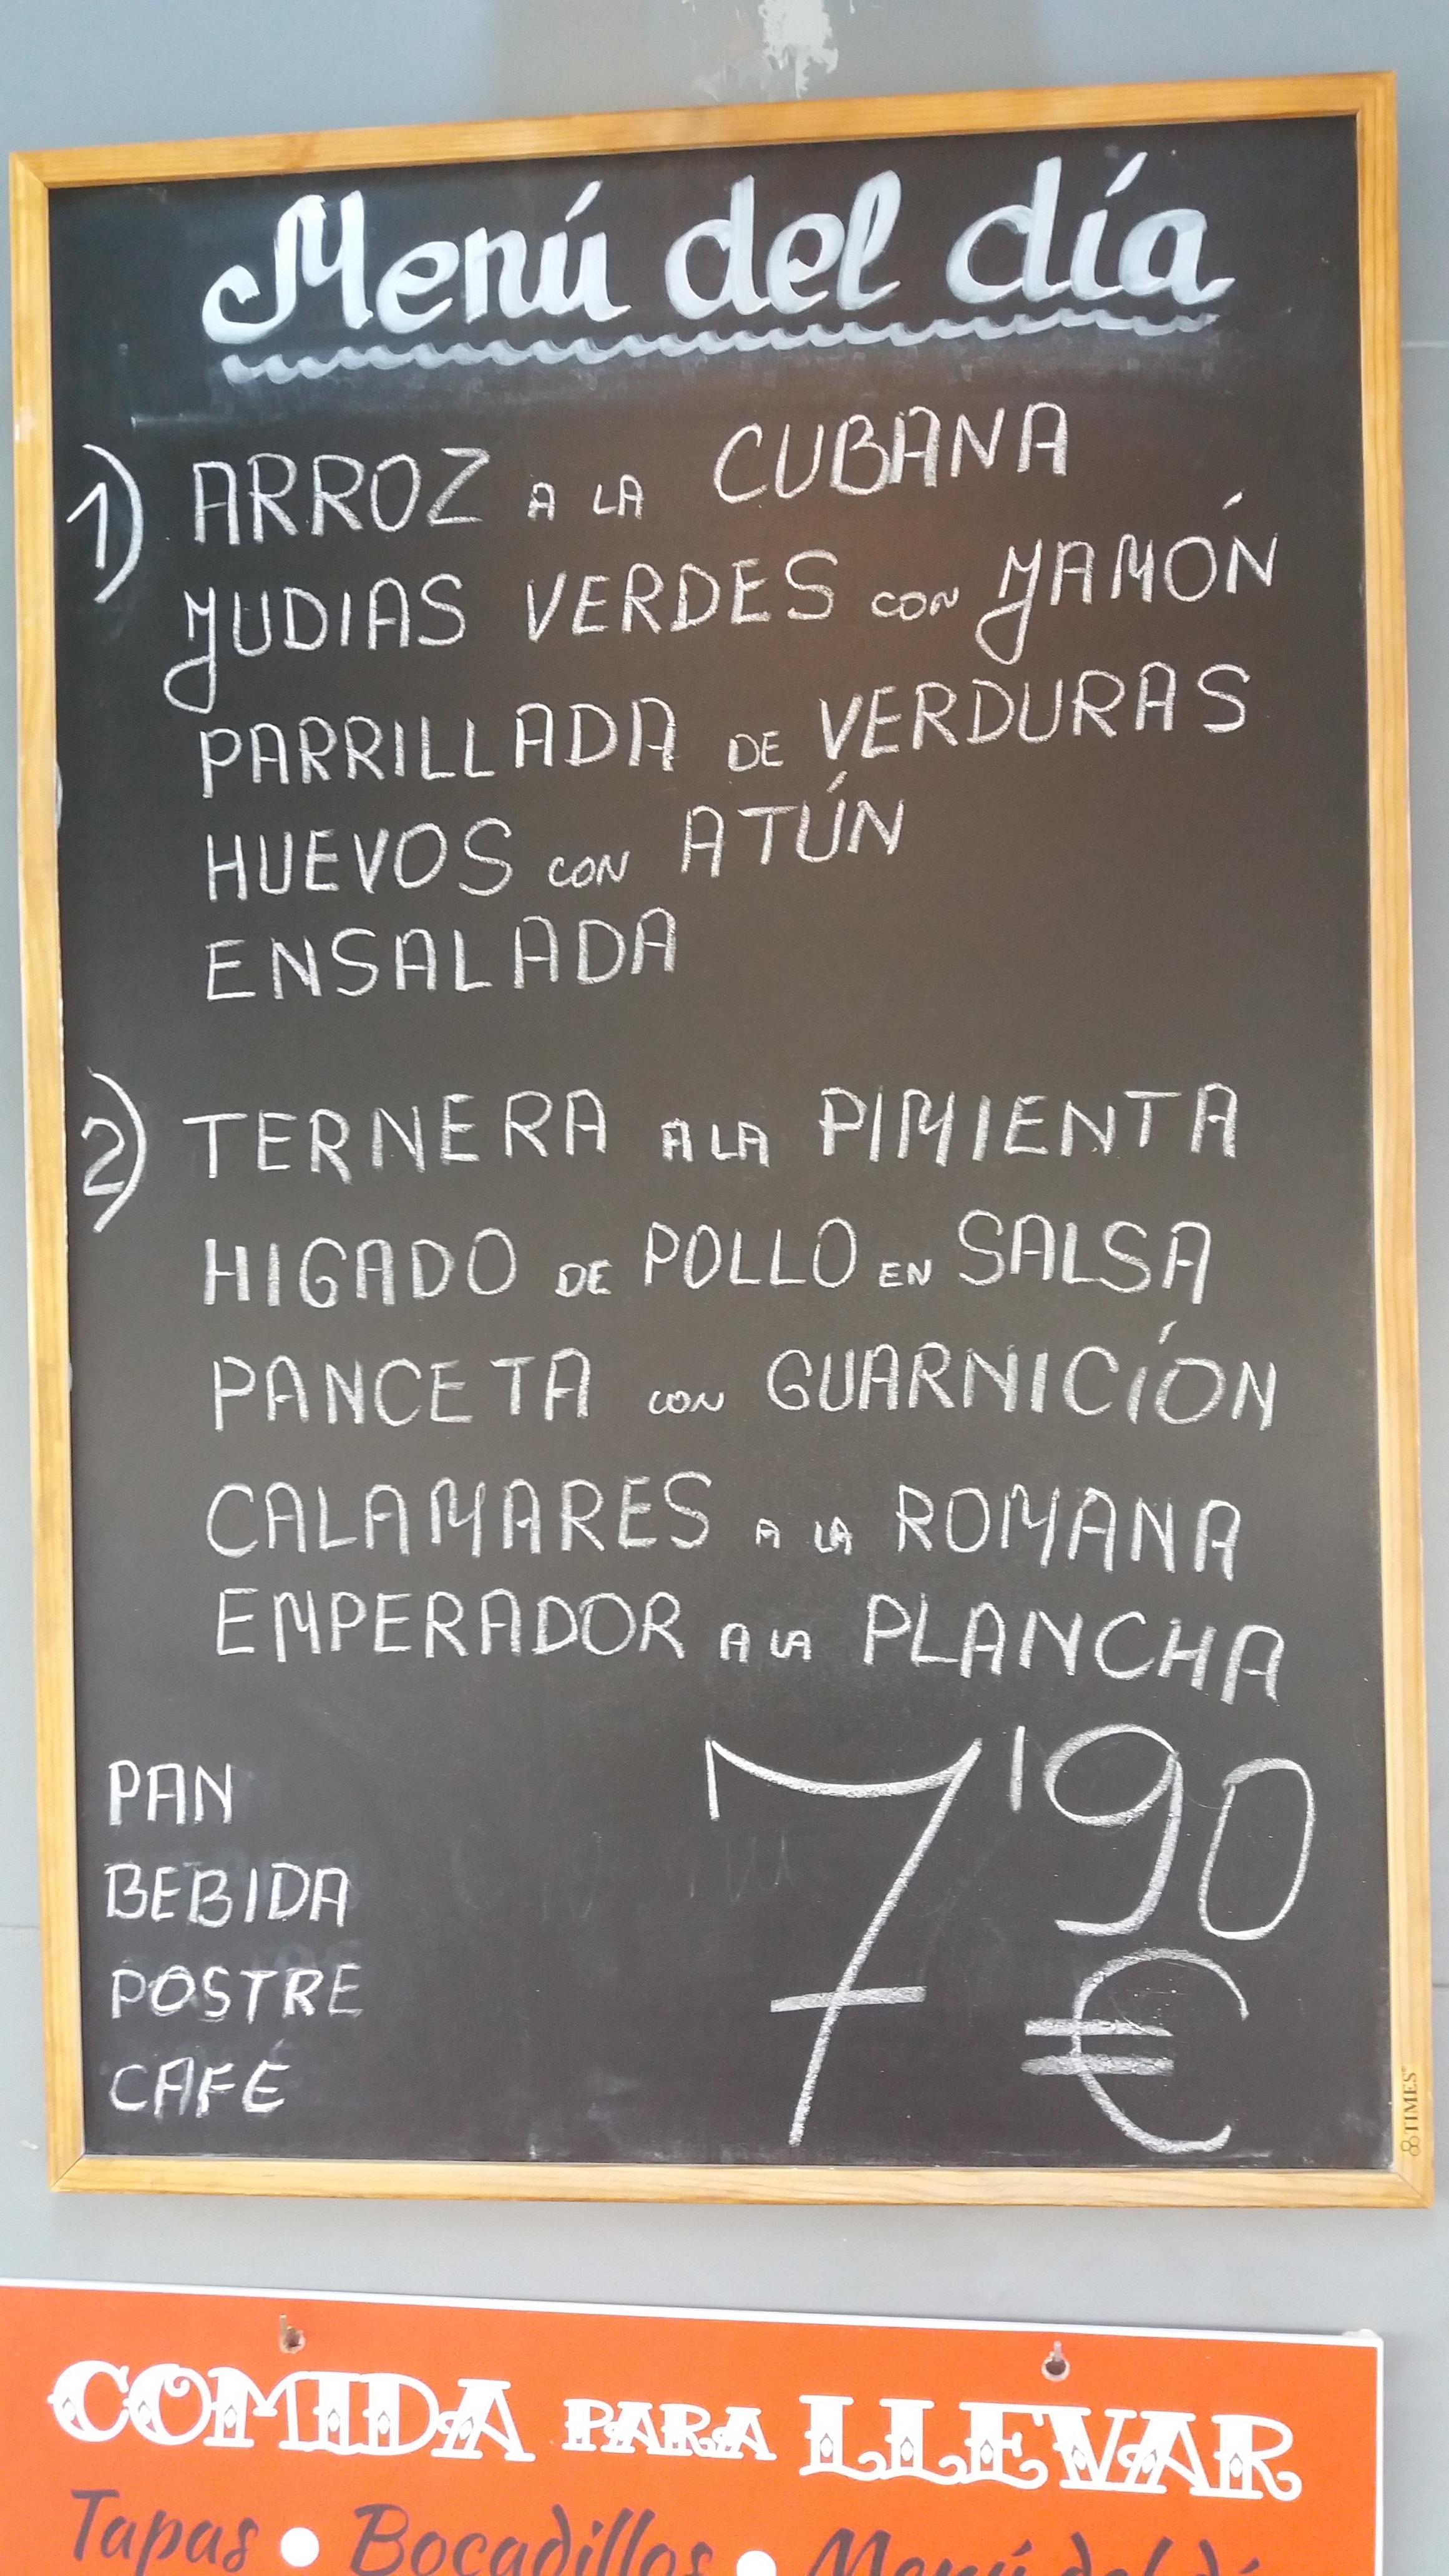 Menú del día
1) ARROZ A LA CUBANA
JUDIAS VERDES CON JAMÓN
PARRILLADA DE VERDURAS
HUEVOS CON ATÚN
ENSALADA
2) TERNERA A LA PIMIENTA
HIGADO DE POLLO EN SALSA
PANCETA CON GUARNICIÓN
CALAMARES A LA ROMANA
EMPERADOR A LA PLANCHA
PAN
BEBIDA
POSTRE
CAFÉ
7'90
€
TIMES
COMIDA PARA LLEVAR
Tapas • Bocadillos • Menú del dí